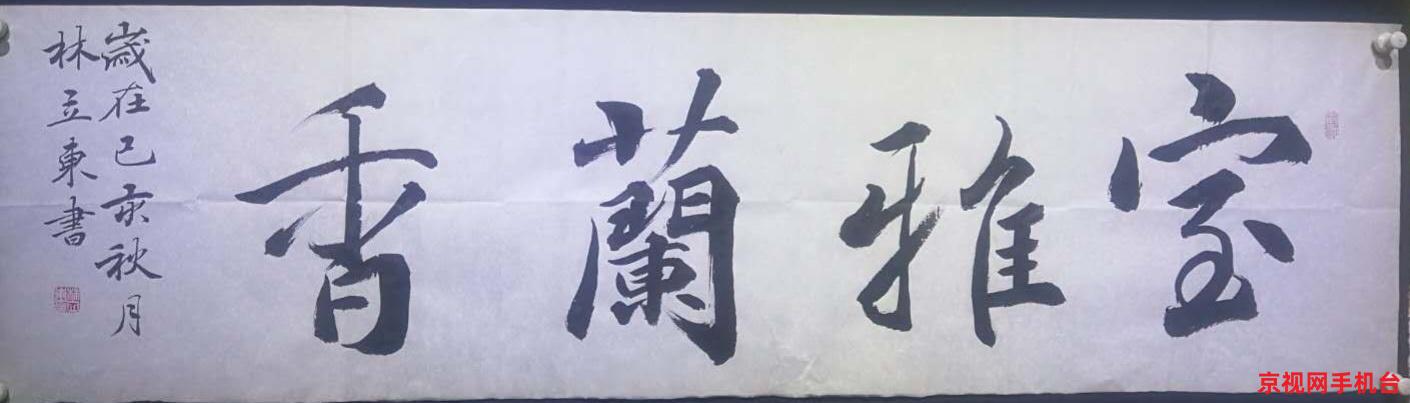 室雅蘭香
歲在己亥秋月
林立東書
京视网手机台